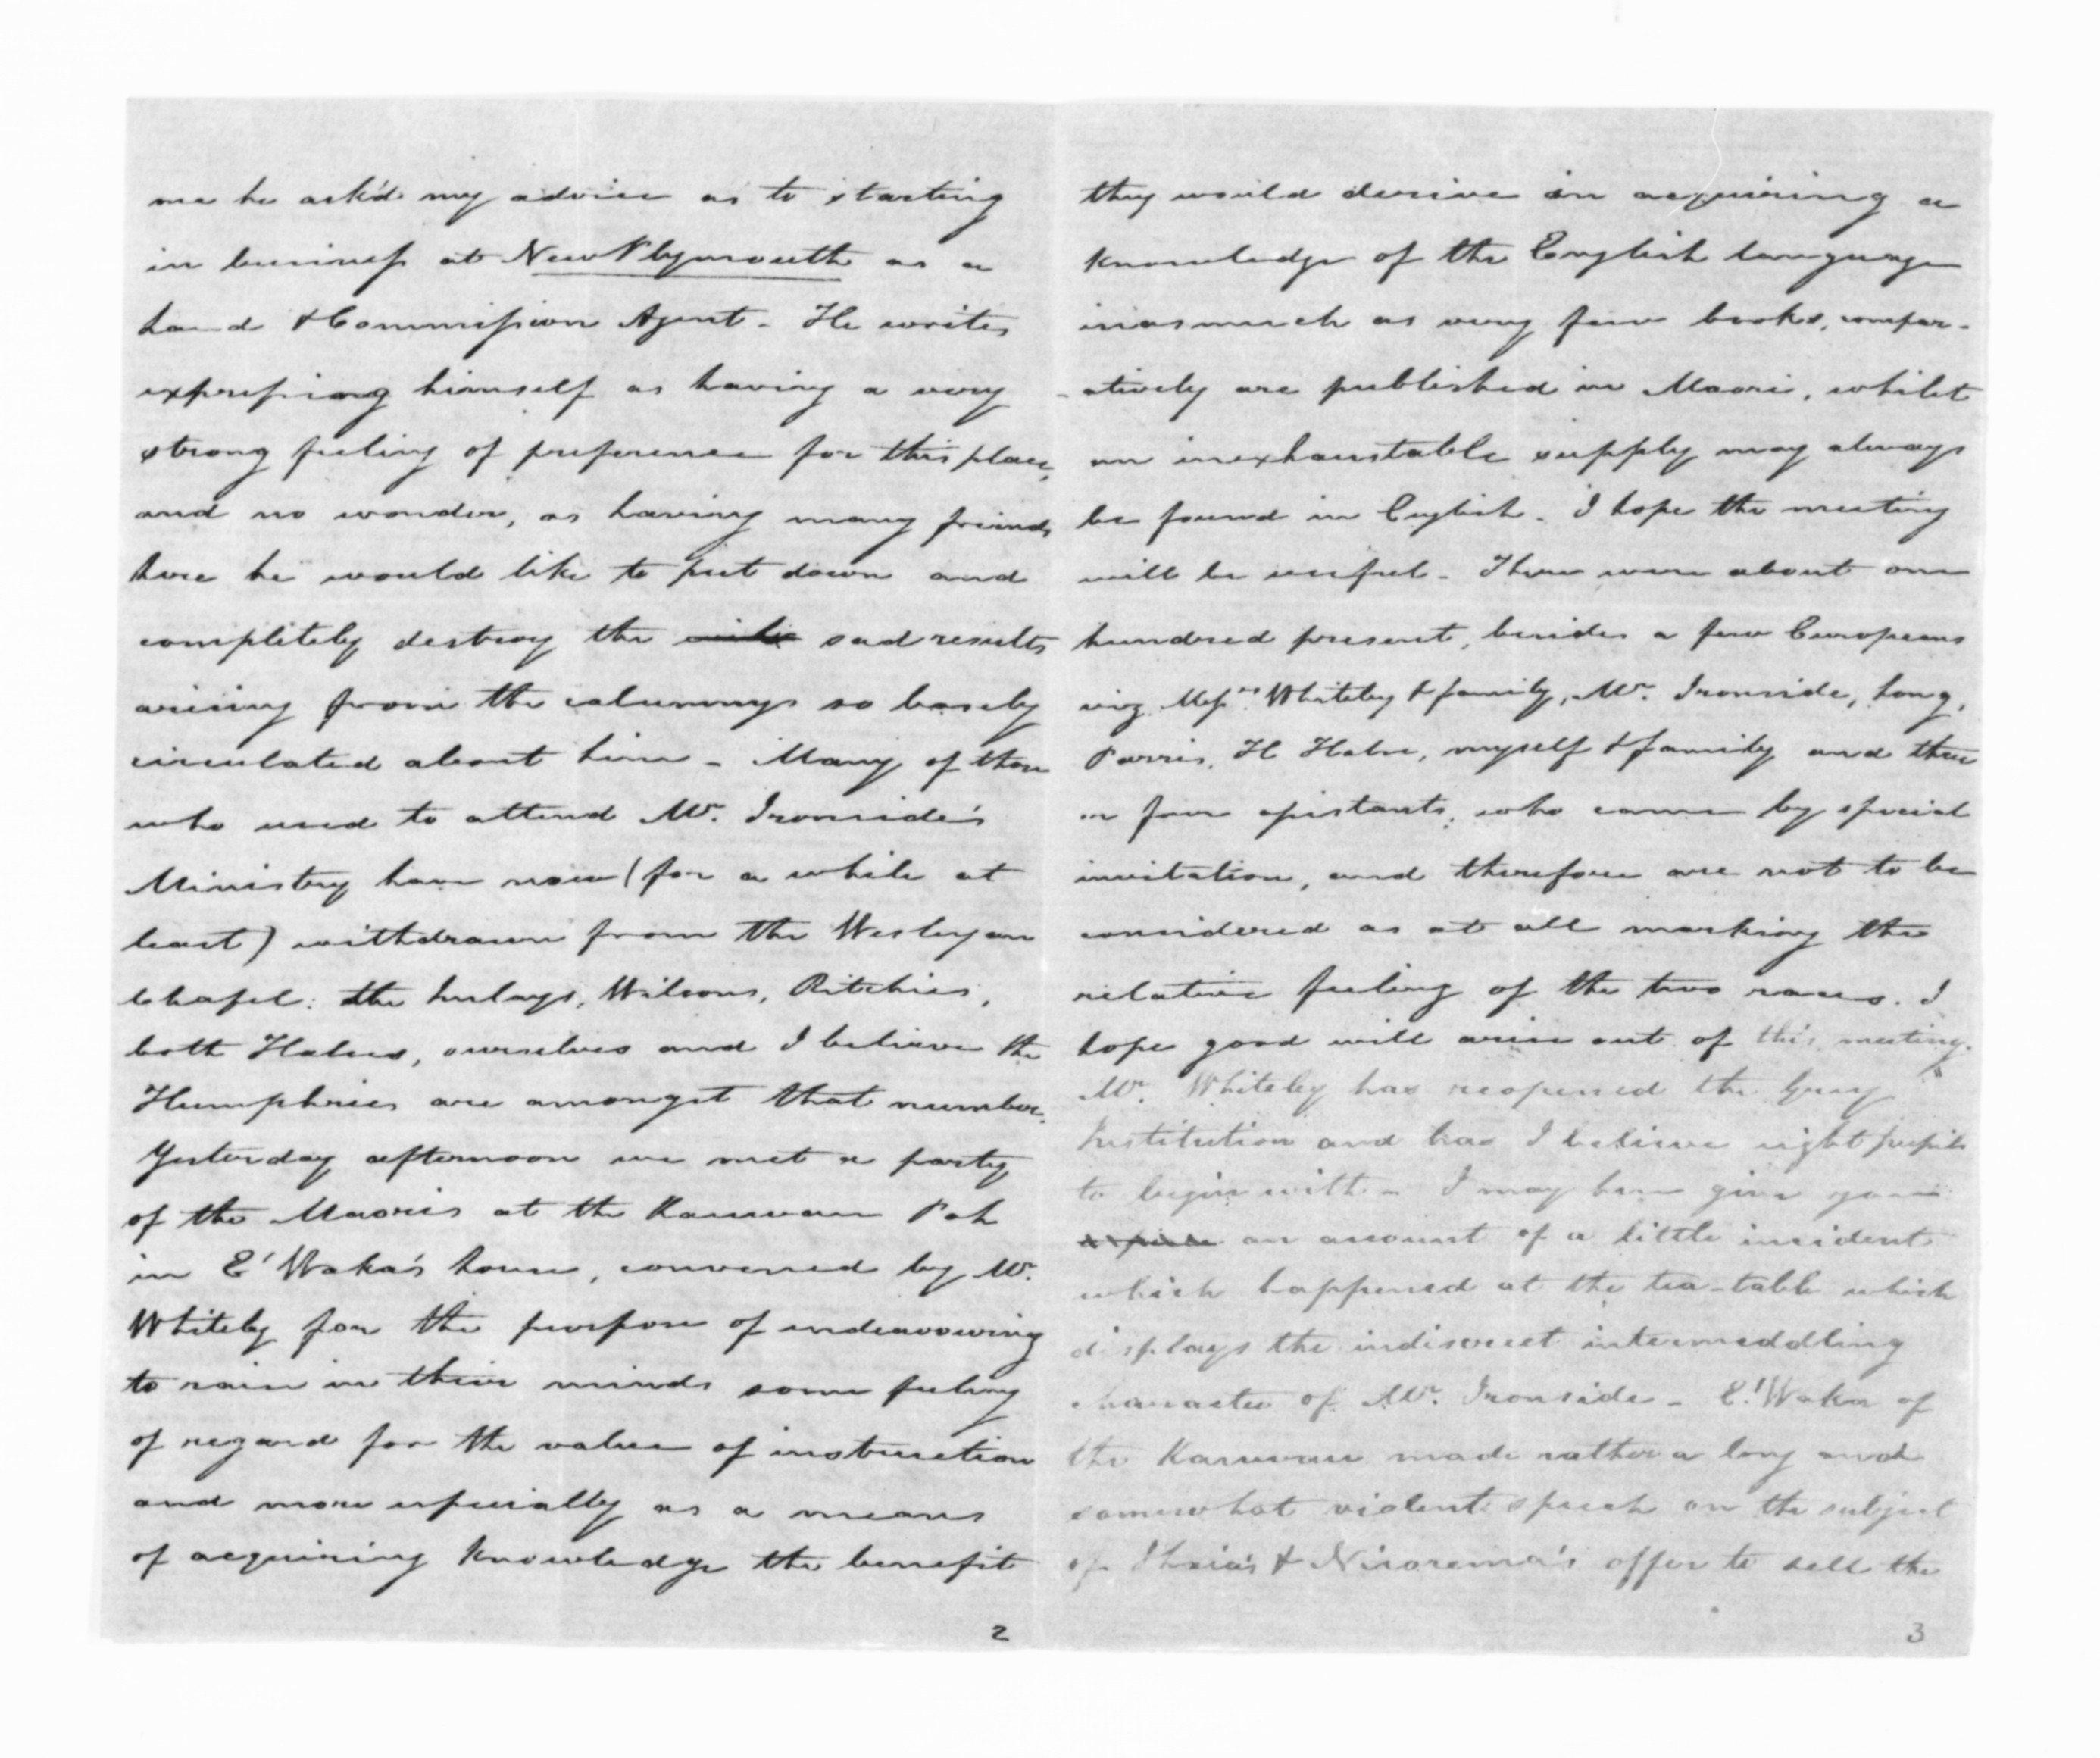 me he ask'd my advice as to starting
in business at New Plymouth as a
Land & Commission Agent - He writes
expressing himself as having a very
strong feeling of preference for this place,
and no wonder, as having many friends
here he would like to put down and
completely destroy the sad results
arising from the calumnys so basely
circulated about him - Many of those
who used to attend Mr. Ironside's
Ministry have now (for a while at
least) withdrawn from the Wesleyan
Chapel: the Wilsons, Ritchies,
both Halses, ourselves and I believe the
Humphries are amongst that number.
Yesterday afternoon we met a party
of the Maories at the Kawau Pah
in E'Waka's house, convened by Mr.
Whiteley for the purpose of endeavouring
to raise in their minds some feeling
of regard for the value of instruction
and more especially as a means
of acquiring knowledge the benefit
2
they would derive in acquiring a
knowledge of the English language
inasmuch as very few books, compar-
-atively are published in Maori, whilst
an inexhaustable supply may always
be found in English. I hope the meeting
will be useful - There were about one
hundred present, besides a few Europeans
viz. Messrs. Whiteley & family, Mr. Ironside, Long,
Parris, H Halse, myself & family and three
or four assistants, who came by special
invitation, and therefore are not to be
considered as at all marking the
relative feeling of the two races. I
hope good will arise out of this meeting.
Mr. Whiteley has reopened the Grey
Institution and has I believe eight pupils
to begin with - I may here give you
an account of a little incident
which happened at the tea-table which
displays the indiscreet intermeddling
character of Mr. Ironside - E'Waka of
the Kawau made rather a long and
somewhat violent speech on the subject
of Ihaia's & Nikorema's offer to sell the
3